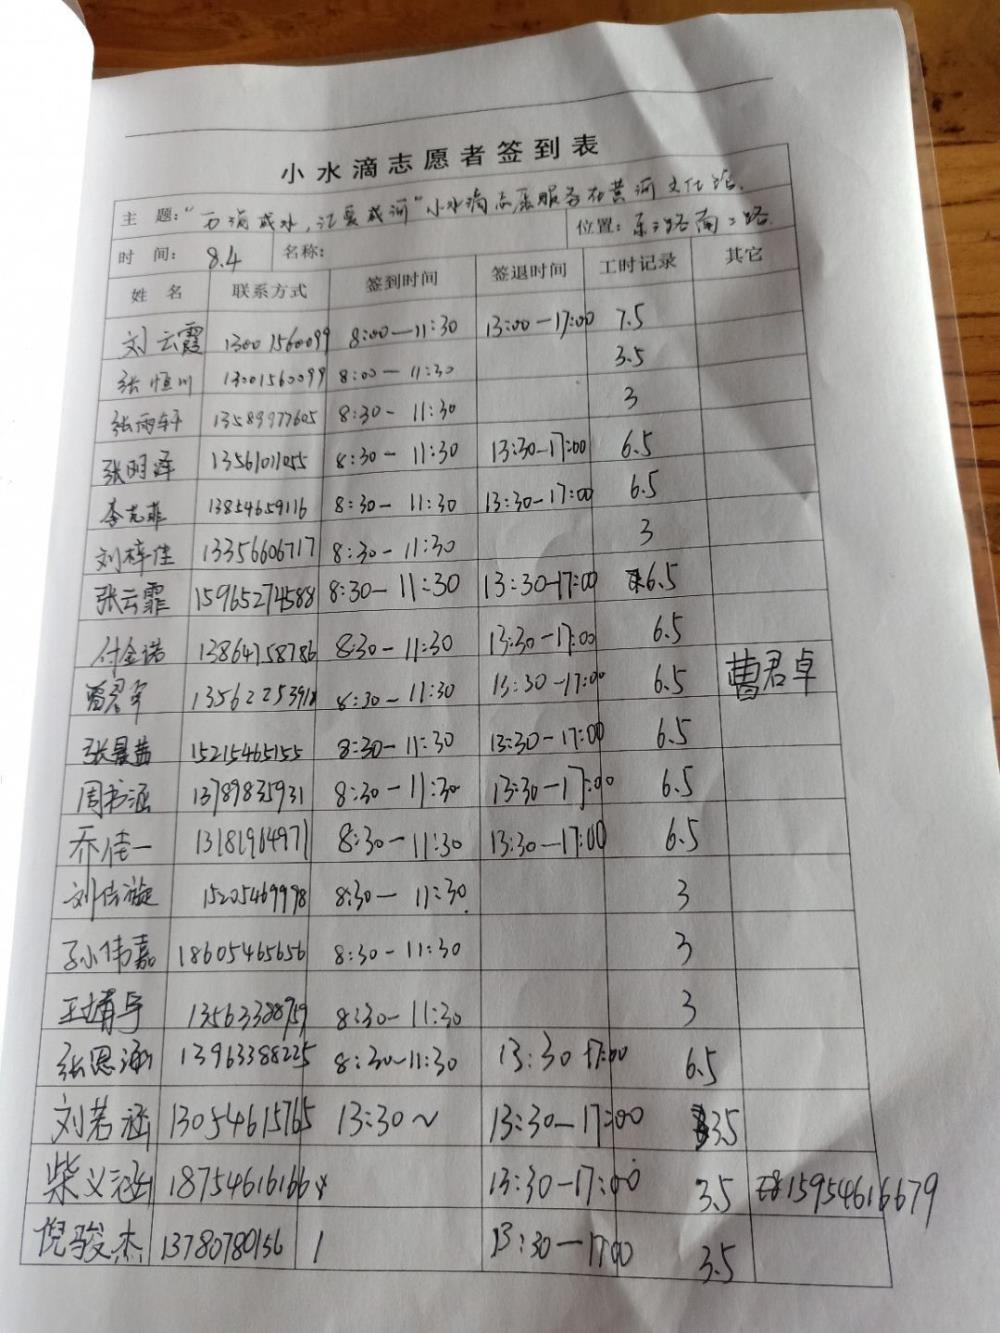 小水滴志愿者签到表
主 题：“百滴成水，汇爱成河”小水滴志愿服务在黄河文化馆.
位置：东三路南二路
时 间： 8.4 名称：
姓 名 联系方式 签到时间 签退时间 工时记录 其它
刘云霞 13001560099 8:00—11:30 13:00—17:00 7.5
张恒川 13001560099 8:00—11:30 3.5
张雨轩 13589977605 8:30—11:30 3
张明泽 13561011055 8:30—11:30 13:30—17:00 6.5
李尤菲 13854659116 8:30—11:30 13:30—17:00 6.5
刘梓佳 13356606717 8:30—11:30 3
张云霏 15965274588 8:30—11:30 13:30—17:00 6.5
付金诺 13864758786 8:30—11:30 13:30—17:00 6.5
曹君卓 13562253918 8:30—11:30 13:30—17:00 6.5 曹君卓
张晨茜 15215465155 8:30—11:30 13:30—17:00 6.5
周书涵 13789835931 8:30—11:30 13:30—17:00 6.5
乔佳一 13181964971 8:30—11:30 13:30—17:00 6.5
刘佶漩 15205469998 8:30—11:30 3
孙伟嘉 18605465656 8:30—11:30 3
王堉宇 13563388759 8:30—11:30 3
张恩涵 13963388225 8:30—11:30 13:30 17:00 6.5
刘若涵 13054615765 13:30~ 13:30—17:00 3.5
柴义涵 18754616166 13:30—17:00 3.5 15954616679
倪骏杰 13780780156 / 13:30—17:00 3.5